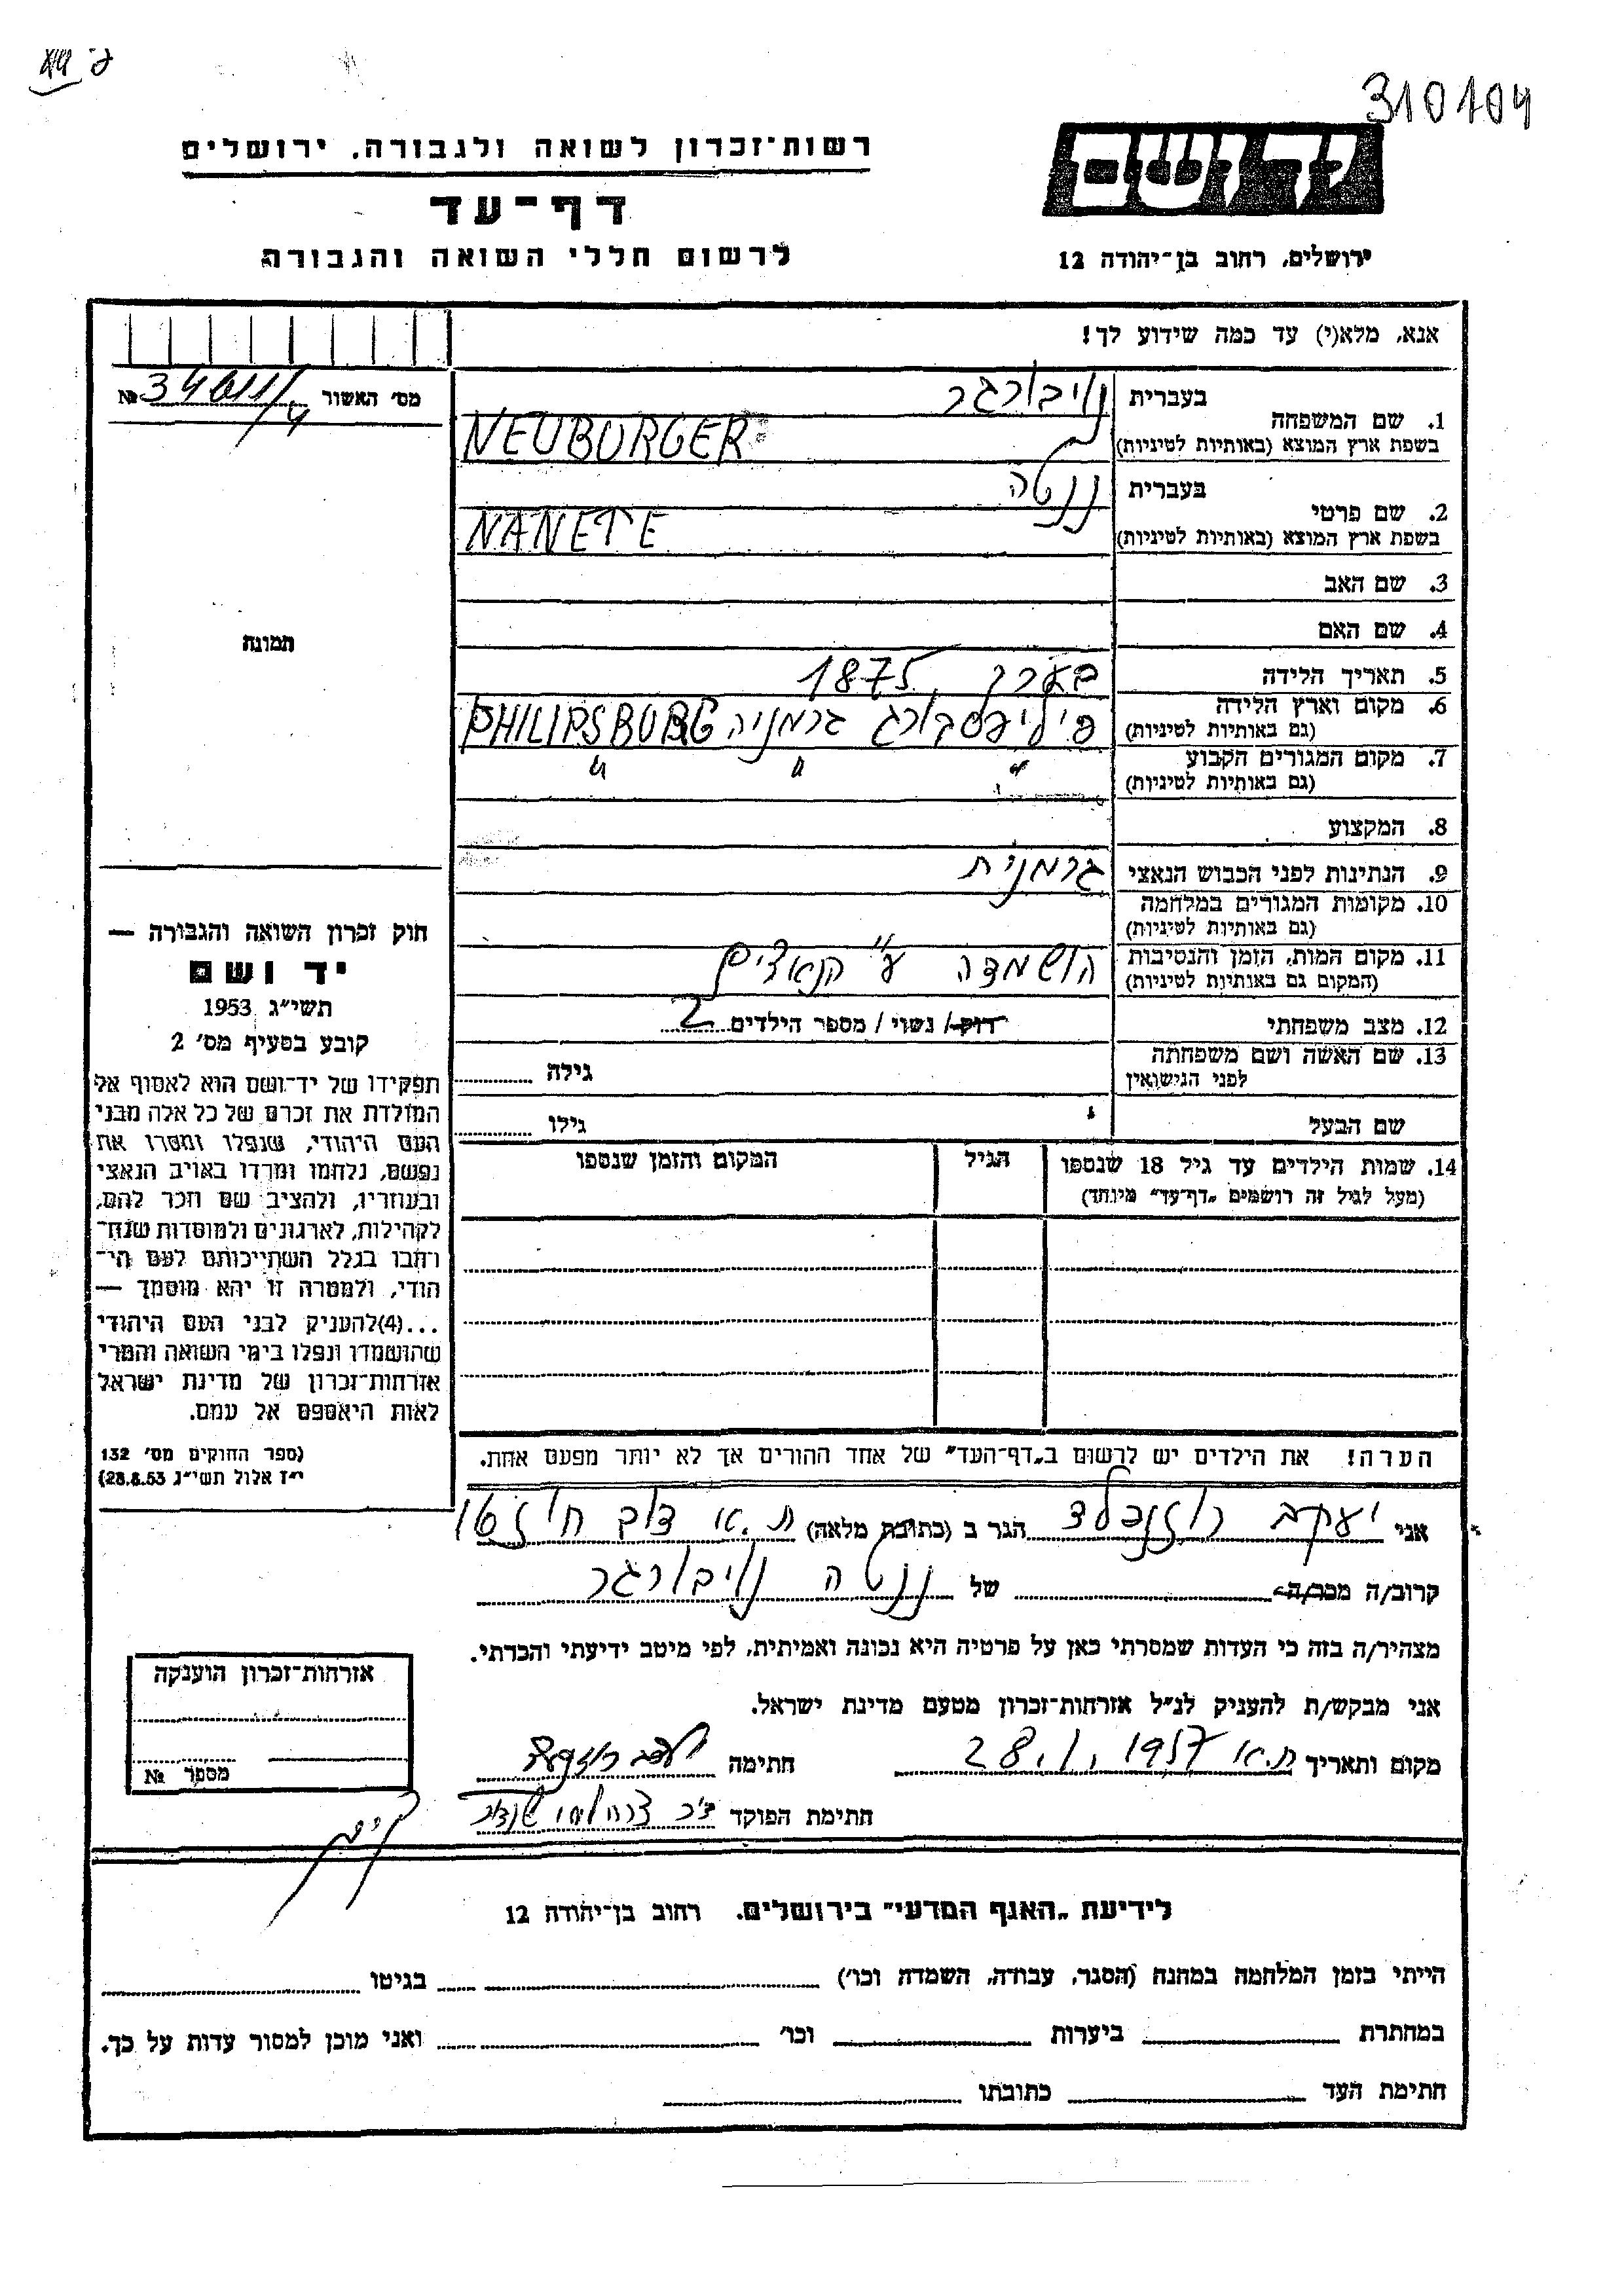 310104
יד ושם
רשות־זכרון לשואה ולגבורה, ירושלים
דף־עד
לרשום חללי השואה והגבורה
ירושלים, רחוב בן־יהודה 12
אנא, מלא(י) עד כמה שידוע לך!
מס׳ האשור №
1. שם המשפחה
בעברית נויבורגר
בשפת ארץ המוצא (באותיות לטיניות) NEUBURGER
2. שם פרטי
בעברית ננטה
בשפת ארץ המוצא (באותיות לטיניות) NANETE
3. שם האב
4. שם האם
5. תאריך הלידה בערך 1875
6. מקום וארץ הלידה (גם באותיות לטיניות) פיליפסבורג גרמניה PHILIPSBURG
7. מקום המגורים הקבוע (גם באותיות לטיניות) " " "
8. המקצוע
9. הנתינות לפני הכבוש הנאצי גרמנית
10. מקומות המגורים במלחמה (גם באותיות לטיניות)
11. מקום המות, הזמן והנסיבות (המקום גם באותיות לטיניות) הושמדה ע"י הנאצים
12. מצב משפחתי רוק / נשוי / מספר הילדים 2
13. שם האשה ושם משפחתה לפני הנישואין גילה
שם הבעל גילו
14. שמות הילדים עד גיל 18 שנספו (מעל לגיל זה רושמים „דף־עד" מיוחד) הגיל המקום והזמן שנספו
תמונה
חוק זכרון השואה והגבורה —
יד ושם
תשי״ג 1953
קובע בסעיף מס׳ 2
תפקידו של יד־ושם הוא לאסוף אל
המולדת את זכרם של כל אלה מבני
העם היהודי, שנפלו ומסרו את
נפשם, נלחמו ומרדו באויב הנאצי
ובעוזריו, ולהציב שם וזכר להם,
לקהילות, לארגונים ולמוסדות שנח־
רבו בגלל השתייכותם לעם הי־
הודי, ולמטרה זו יהא מוסמך —
...(4)להעניק לבני העם היהודי
שהושמדו ונפלו בימי השואה והמרי
אזרחות־זכרון של מדינת ישראל
לאות היאספם אל עמם.
(ספר החוקים מס׳ 132
י״ז אלול תשי״ג 28.8.53)
הערה! את הילדים יש לרשום ב„דף־העד" של אחד ההורים אך לא יותר מפעם אחת.
אני יעקב רוזנפלד הגר ב (כתובת מלאה) ת.א
קרוב/ה מכר/ה של ננטה נויבורגר
מצהיר/ה בזה כי העדות שמסרתי כאן על פרטיה היא נכונה ואמיתית, לפי מיטב ידיעתי והכרתי.
אני מבקש/ת להעניק לנ״ל אזרחות־זכרון מטעם מדינת ישראל.
מקום ותאריך ת.א 28.1.1957 חתימה יעקב רוזנפלד
חתימת הפוקד
אזרחות־זכרון הוענקה
מספר №
לידיעת „האגף המדעי" בירושלים, רחוב בן־יהודה 12
הייתי בזמן המלחמה במחנה (הסגר, עבודה, השמדה וכו׳) בגיטו
במחתרת ביערות וכו׳ ואני מוכן למסור עדות על כך.
חתימת העד כתובתו